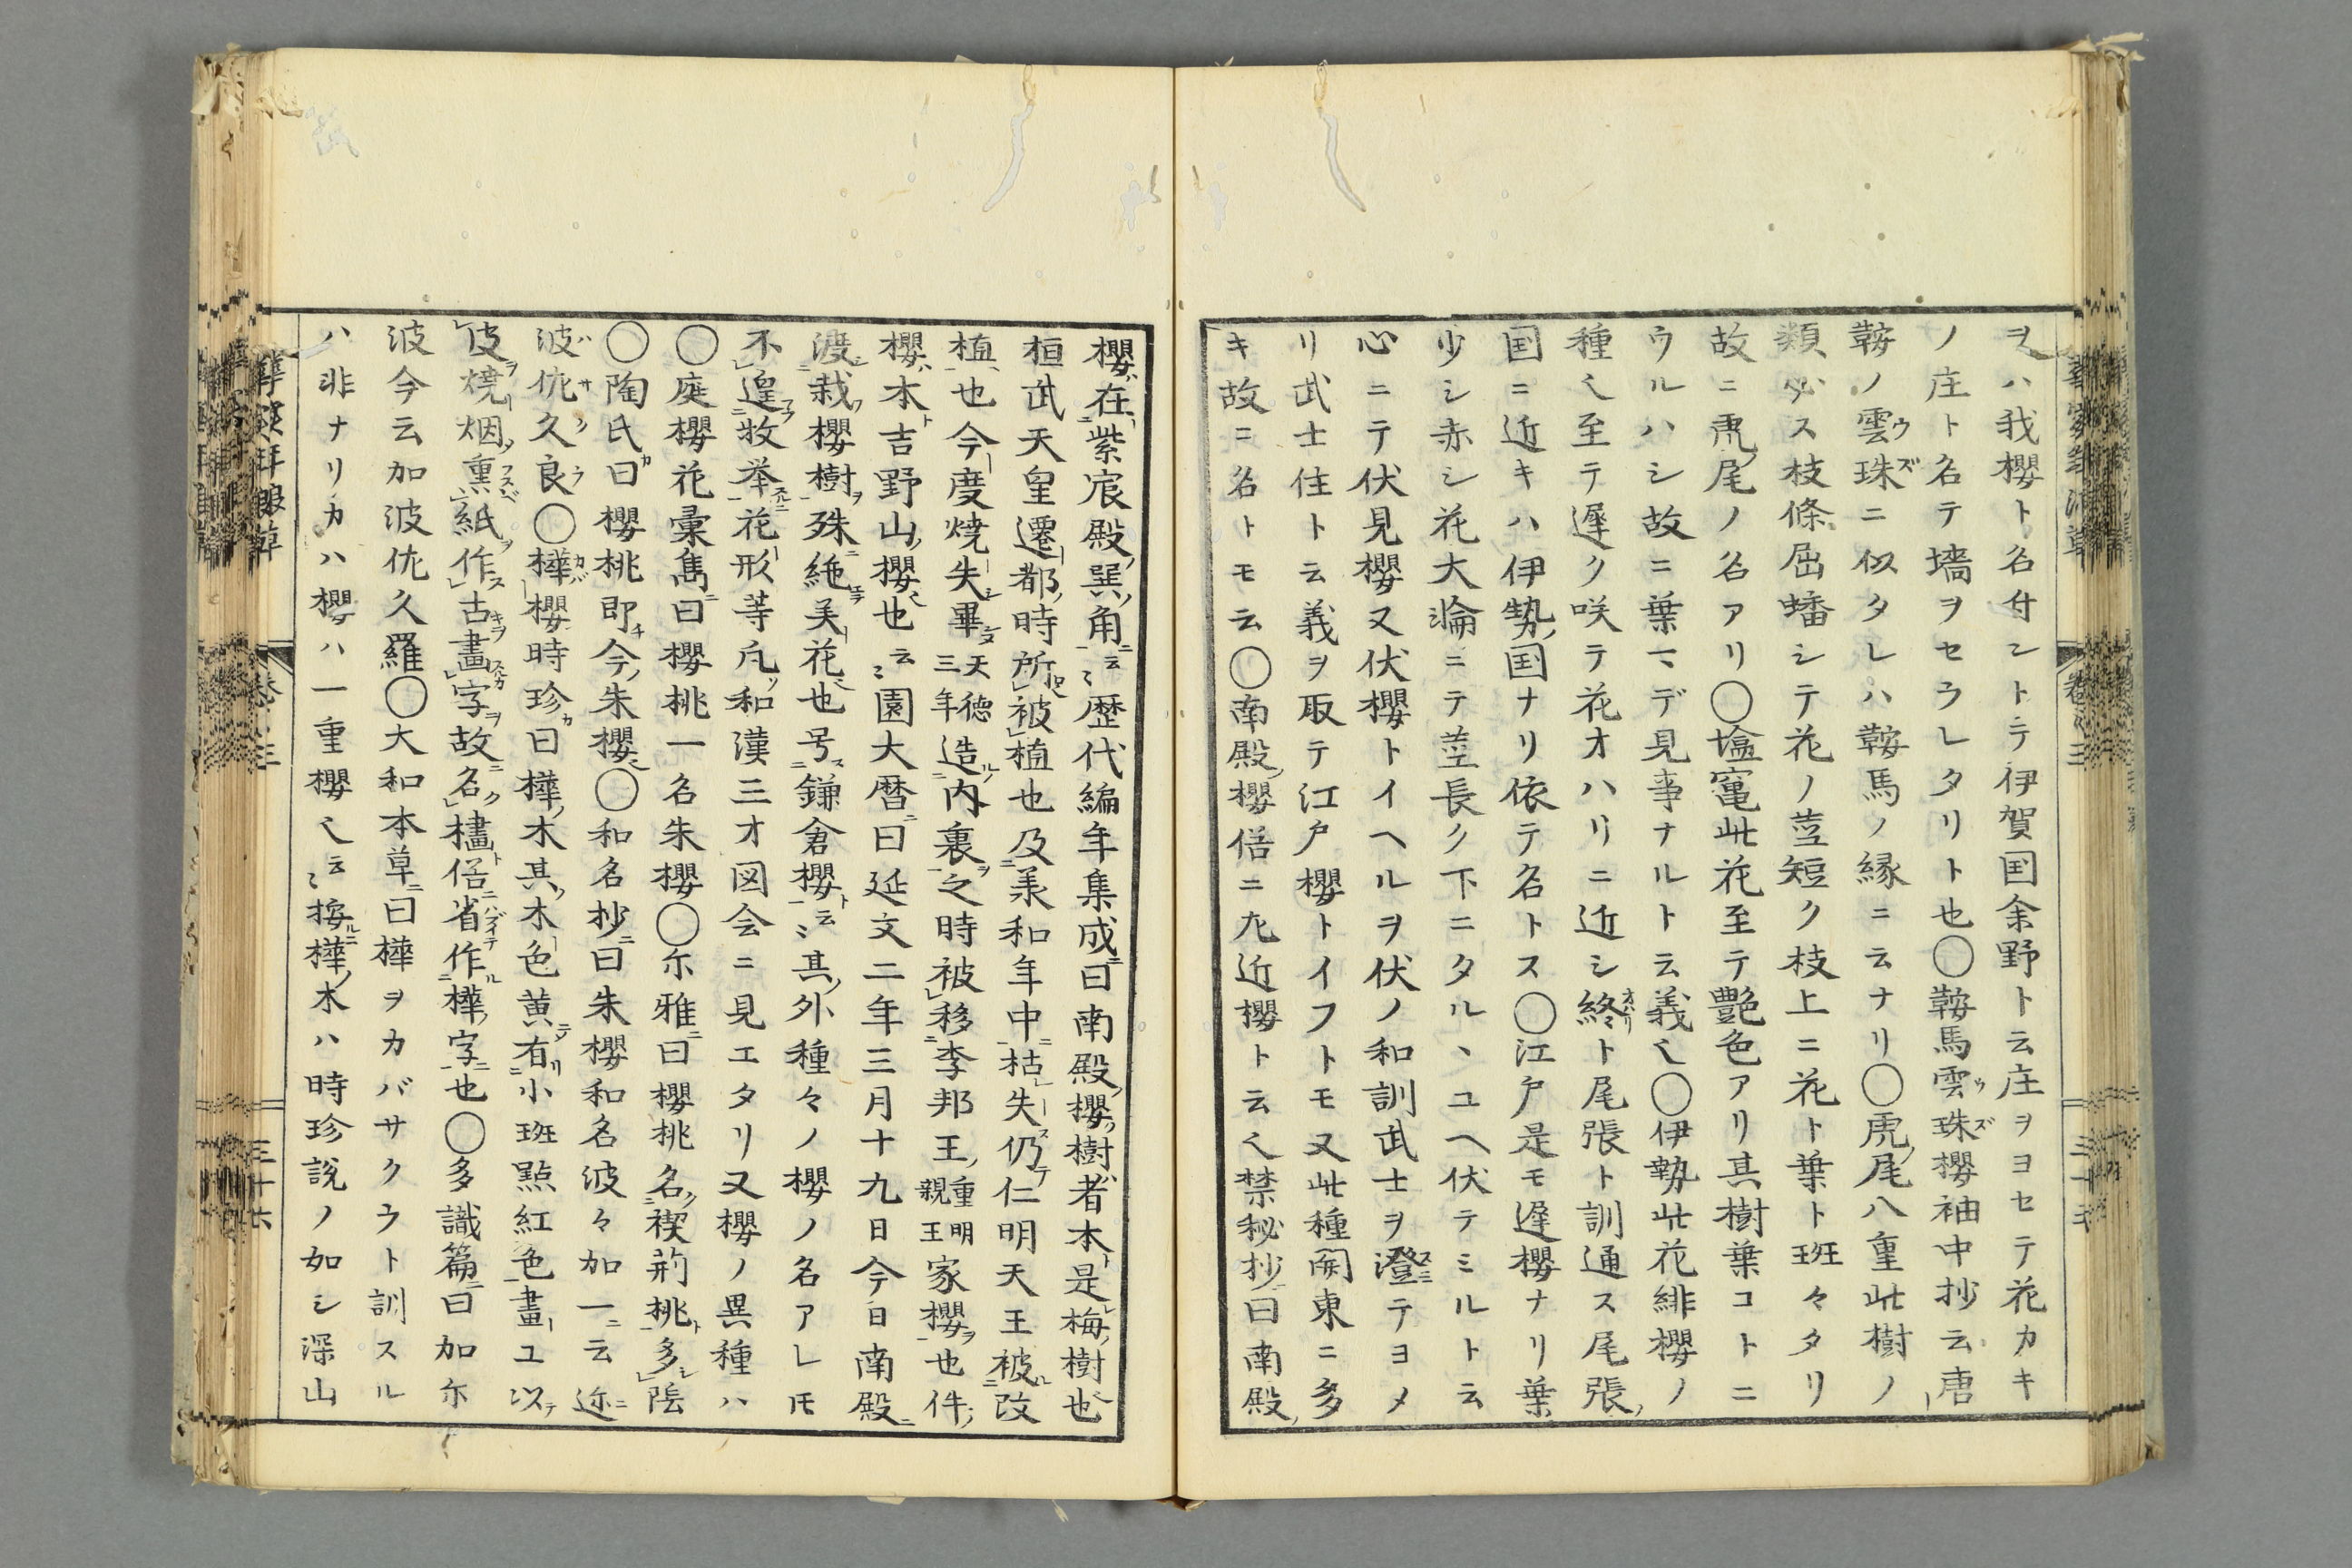 ヲハ我櫻ト名付シトテ伊賀国余野ト云庄ヲヨセテ花カキ
ノ庄ト名テ墻ヲセウレタリト也〇鞍馬雲珠櫻袖中抄云唐
鞍ノ雲珠ニ似タレハ鞍馬ノ縁ニ云ナリ〇虎尾八重此樹ノ
類少ス枝條屈蟠シテ花ノ莖短ク枝上ニ花ト葉ト班々タリ
故ニ虎尾ノ名アリ〇塩竃此花至テ艶色アリ其樹葉コトニ
ウルハシ故ニ葉マデ見事ナルト云義也〇伊勢此花緋櫻ノ
種也至テ遅ク咲テ花オハリニ近シ終ト尾張ト訓通ス尾張
国ニ近キハ伊勢国ナリ依テ名トス〇江戸是モ遅櫻ナリ葉
少シ赤シ花大瀹ニテ莖長ク下ニタル、ユヘ伏テミルト云
心ニテ伏見櫻又伏櫻トイヘルヲ伏ノ和訓武士ヲ澄テヨメ
リ武士住ト云義ヲ取テ江戸櫻トイフトモ又此種関東ニ多
キ故ニ名トモ云〇南殿櫻俗ニ左近櫻ト云也禁秘抄曰南殿
櫻在紫宸殿巽角云々歴代編年集成曰南殿櫻樹者木是梅樹也
桓武天皇遷都時所被植也及美和年中枯失仍仁明天王被改
植也今度焼失畢天德三年造内裏之時被移李邦王重明親王家櫻也件
櫻木吉野山櫻也云々園大暦曰延文二年三月十九日今日南殿
渡栽櫻樹殊絶美花也号鎌倉櫻云々其外種々ノ櫻ノ名アレ𪜈
不遑牧挙花形等凡和漢三才図会ニ見エタリ又櫻ノ異種ハ
〇庭櫻花彙雋曰櫻桃一名朱櫻〇尓雅曰櫻桃名楔荊桃多陰
〇陶氏曰櫻桃即今朱櫻〇和名抄曰朱櫻和名波々加一云迩
波佐久良〇樺櫻時珍曰樺木其木色黄有小班點紅色畫ユ以
皮焼烟熏紙作古畫字故名㯆俗省作樺字也〇多識篇曰加尓
波今云加波佐久羅〇大和本草曰樺ヲカバサクウト訓スル
ハ非ナリカハ櫻ハ一重櫻也云々按樺木ハ時珍説ノ如シ深山
巻之三
三十六